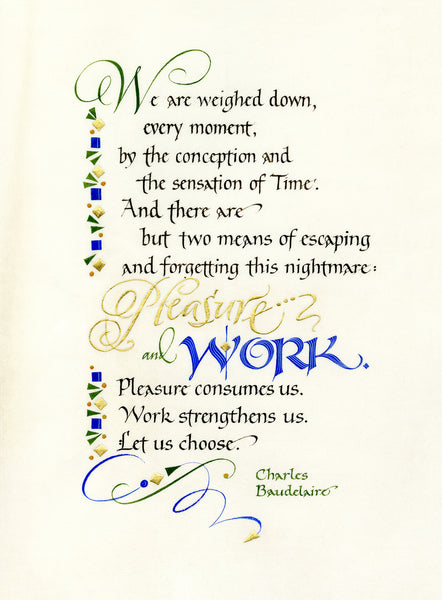 We are weighed down,
every moment,
by the conception and
the sensation of Time.
And there are
but two means of escaping
and forgetting this nightmare:
Pleasure...
and WORK.
Pleasure consumes us.
Work strengthens us.
Let us choose.
Charles
Baudelaire